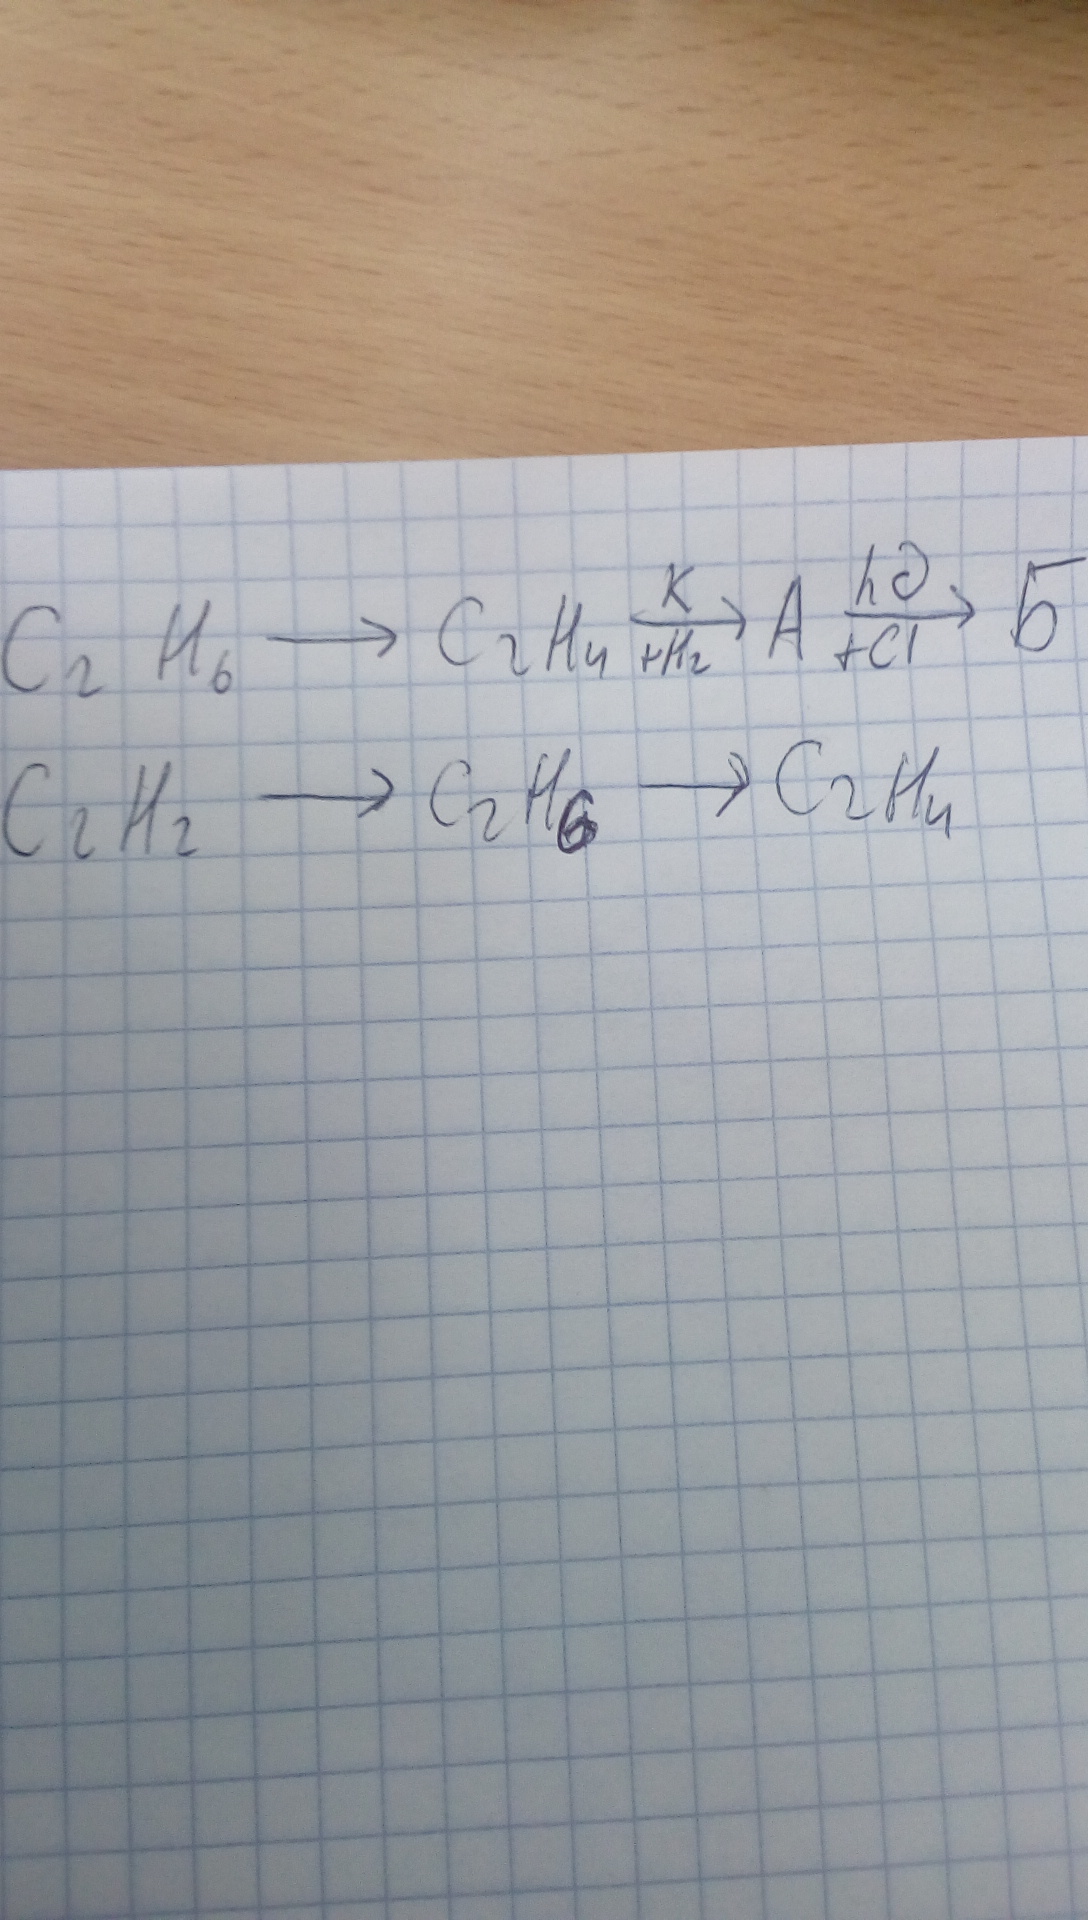 C₂H₆ → C₂H₄ —K/+H₂→ A —h∂/+Cl→ Б
C₂H₂ → C₂H₆ → C₂H₄